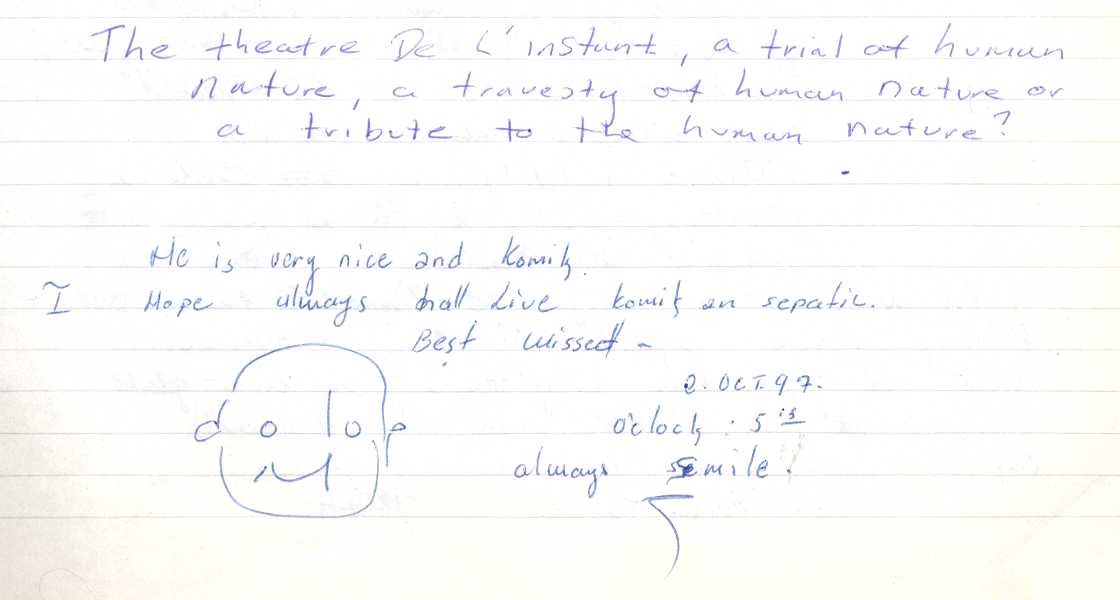 The theatre De L'instant, a trial of human
nature, a travesty of human nature or
a tribute to the human nature?
He is very nice and Komik.
I Hope always hall Live komik an sepatic.
Best wissed
2. OCT. 97.
o'clock : 5 15
always smile.
dolop